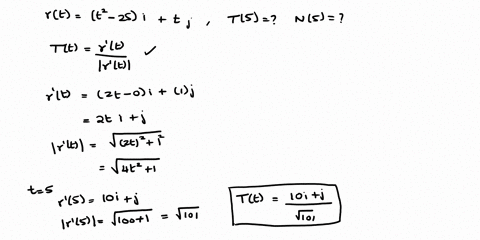 r(t) = (t²-25) i + t j , T(5)=? N(5)=?
T(t) = r'(t) / |r'(t)| ✓
r'(t) = (2t-0) i + (1) j
= 2t i + j
|r'(t)| = √((2t)² + 1²)
= √(4t² + 1)
t=5
r'(5) = 10i + j
|r'(5)| = √(100+1) = √101
T(t) = (10i + j) / √101